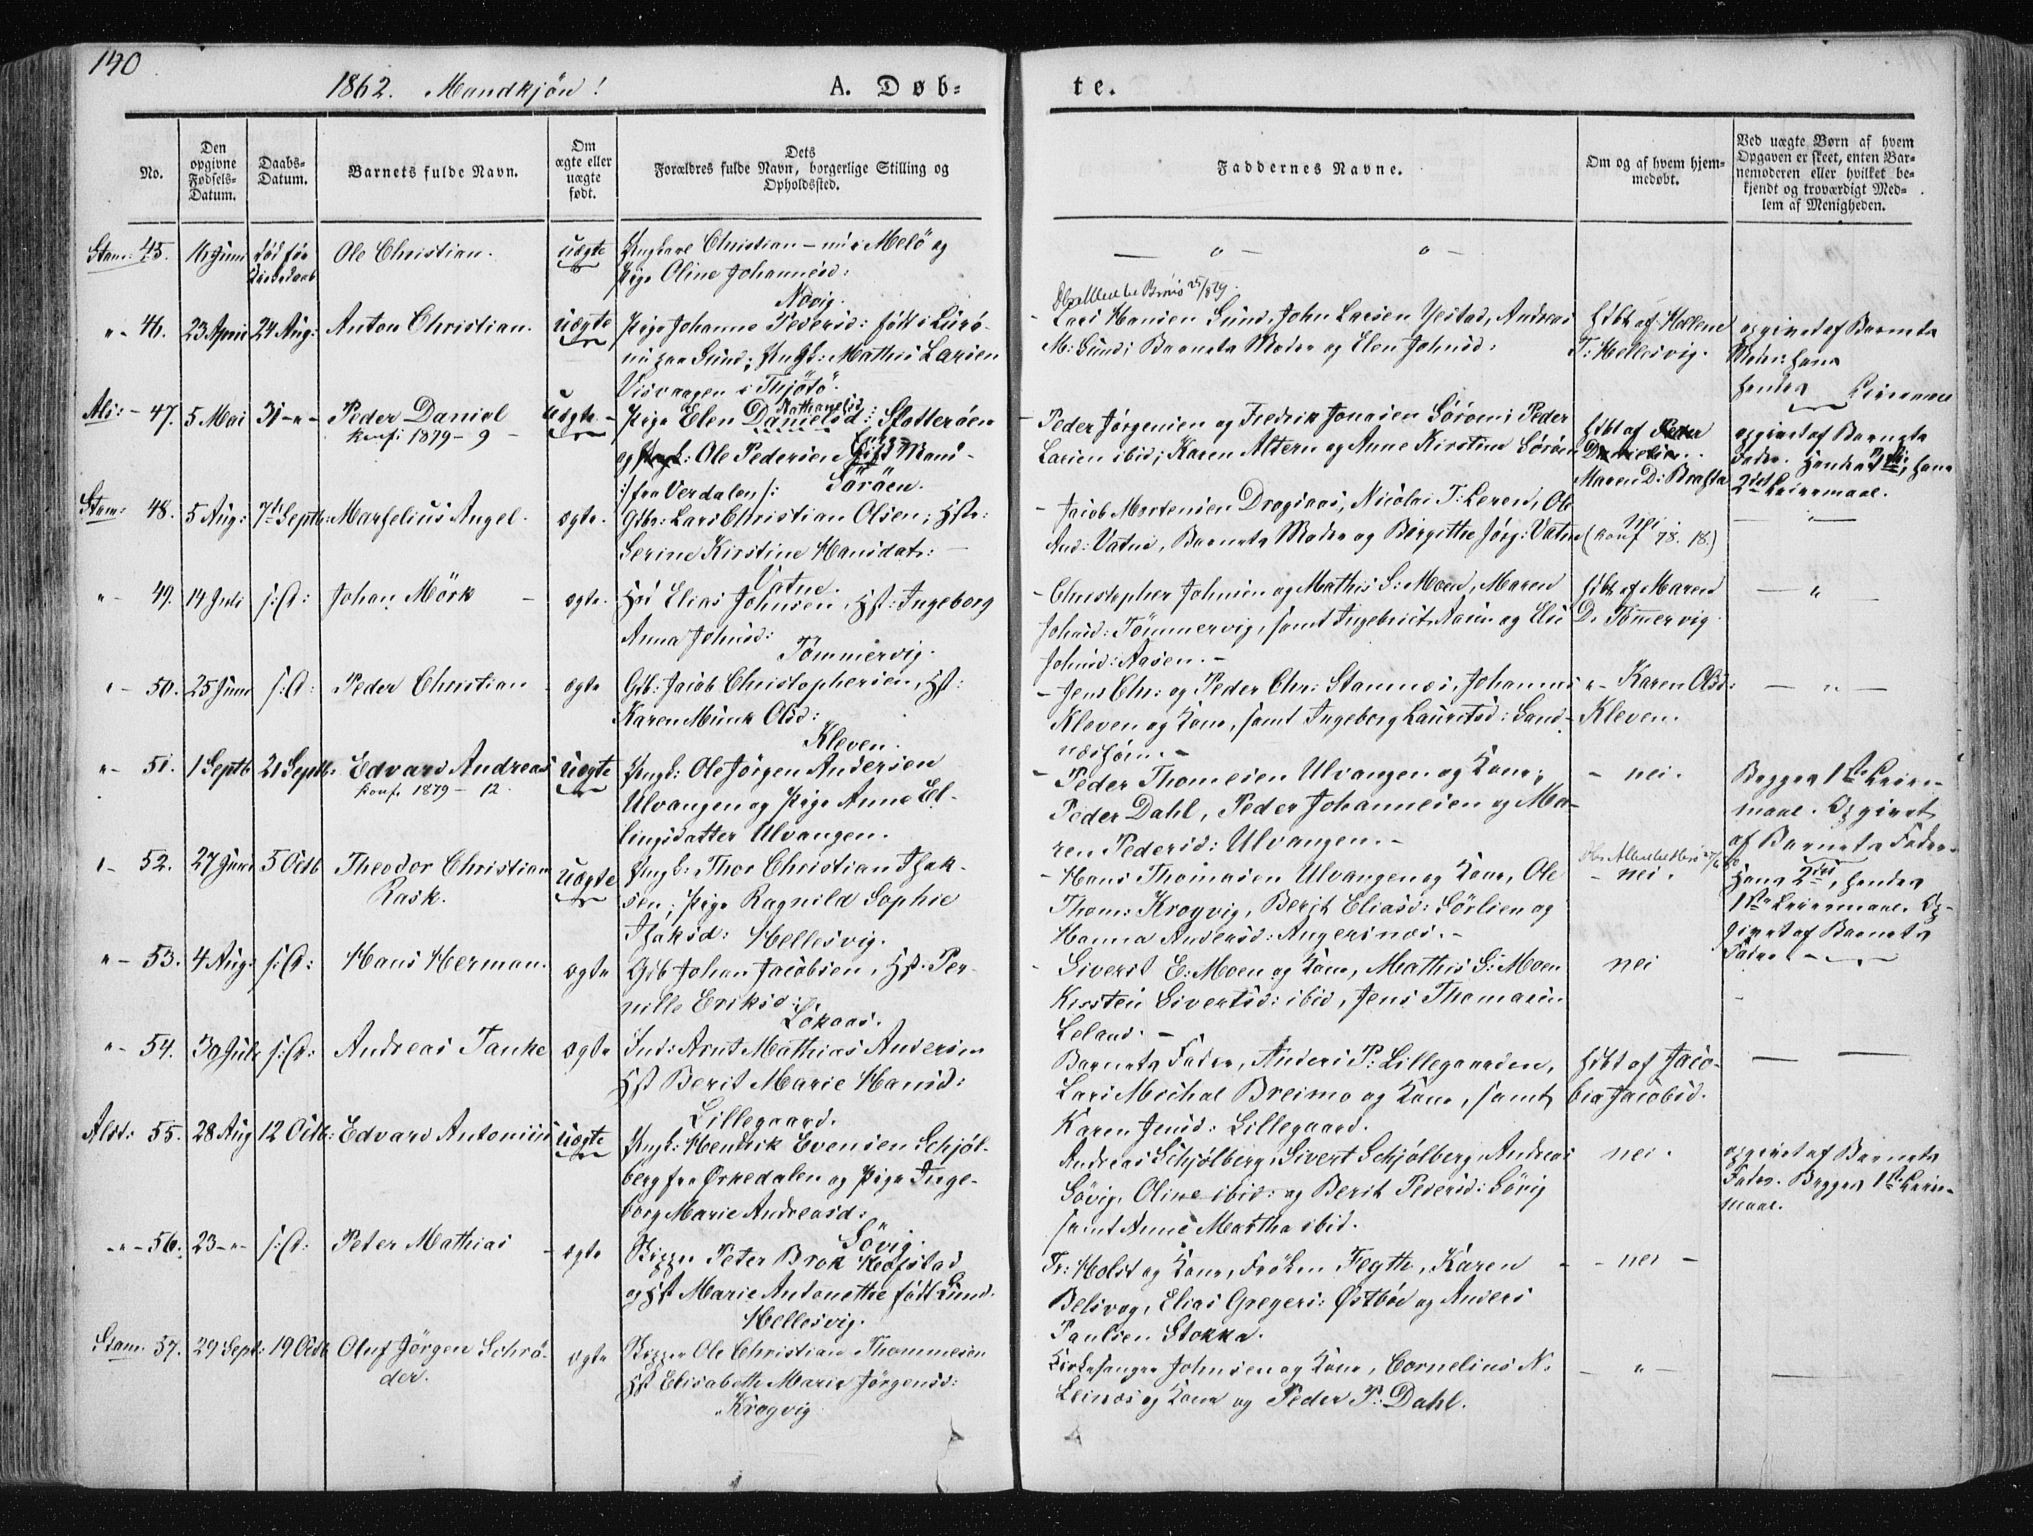 140
1862. Mandkjön!
A. Døb=
te.
No.
Den opgivne Fødsels-Datum.
Daabs-Datum.
Barnets fulde Navn.
Om ægte eller uægte født.
Dets Forældres fulde Navn, borgerlige Stilling og Opholdssted.
Faddernes Navne.
Om og af hvem hjemmedøbt.
Ved uægte Børn af hvem Opgaven er skeet, enten Barnemoderen eller hvilket bekjendt og troværdigt Medlem af Menigheden.
Stam: 45. 16 Juni død før Ole Christian. uægte Ungkarl Christian Melö og
Pige Oline Johannesd:
Növig.
" - 46. 23 April 24 Aug: Anton Christian. uægte Pige Johanne Pedersd: født i Lurö
nu paa Sund; Ungk: Mathis Larsen
Visvaagen i Thjötö.
Lars Hansen Sund, John Larsen Ystad, Andreas
M: Sund; Barnets Moder og Elen Johnsd:
hdbt af Hellene
T: Hellesvig.
opgivet af Barnets
Moder. hans
hendes Leiermaal
Als: - 47. 5 Mai 31 - " - Peder Daniel uægte Pige Elen Danielsd: Slotterøen
konf. 1879 - 9 -
Nathanelsd
og Ole Pedersen Gift Mand
/: fra Verdalen :/ Sörøen.
Peder Jørgensen og Fredrik Jonasen Sörøen; Peder
Larsen ibid; Karen Altern og Anne Kirstine Sörøen
hdbt af Peder
Danielsen.
Maren D: Brasta
opgivet af Barnets
Fader. Hendes 1ste, hans
2det Leiermaal.
Stam: 48. 5 Aug: 7de Septb: Marselius Angel. ægte Gdbr: Lars Christian Olsen; Hst:
Serine Kirstine Hansdatr: -
Vatne.
- Jacob Mortensen Dragsaas, Nicolai T: Leren, Ole
And: Vatne, Barnets Moder og Birgithe Jørg: Vatne
Nei
(konf 78. 18.)
" - 49. 14 Juli s: D: Johan Mörk - ægte. Hsm Elias Johnsen, Hst: Ingeborg
Anna Johnsd:
Tömmervig.
- Christopher Johnsen og Mathis S: Moen, Maren
Johnsd: Tömmervig, samt Ingebrigt Aasen og Else
Johnsd: Aasen. -
hdbt af Maren
D. Tömervig.
" - 50. 25 Juni s: D: Peder Christian - ægte Gdb: Jacob Christophersen, Hst:
Karen Munk Olsd:
Kleven.
- Jens Chr: og Peder Chr: Stamnes, Johannes
Kleven og Kone, samt Ingeborg Lauritsd: Sand-
neshorn. -
" - Karen Olsd:
Kleven.
" - 51. 1 Septb 21 Septb: Edvard Andreas uægte Ungk: Ole Jörgen Andersen
konf. 1879 - 12.
Ulvangen og Pige Anne El-
lingsdatter Ulvangen.
- Peder Thomesen Ulvangen og Kone,
Peder Dahl, Peder Johannesen og Ma-
ren Pedersd: Ulvangen. -
- nei.
Begges 1ste Leier-
maal. Opgivet
af Barnets Fader.
" - 52. 27 Juni 5 Octb Theodor Christian uægte Ungk: Thor Christian Isak-
Rask.
sen; Pige Ragnild Sophie
Isaksd: Hellesvig.
- Hans Thomasen Ulvangen og Kone, Ole
Thom: Krogvig, Berit Eliasd: Sörlien og
Hanna Andersd: Angersnes. -
- nei.
Hans 2det, hendes
1ste Leiermaal. Op-
givet af Barnets
Fader. -
" - 53. 4 Aug: s: D: Hans Herman. ægte Gdb Johan Jacobsen, Hst: Per-
nille Eriksd:
Lökaas.
- Siverst E: Moen og Kone, Mathis S: Moen
Kirsten Sivertsd: ibid, Jens Thomasen
Leland. -
nei
" - 54. 30 Juli s: D: Andreas Tanke ægte Ind: Arnt Mathias Andersen
Hst Berit Marie Hansd:
Lillegaard.
Barnets Fader, Anders P: Lillegaarden,
Lars Michal Breimo og Kone, samt
Karen Jensd: Lillegaard.
hdbt af Jaco-
bia Jacobsd.
Alst: 55. 28 Aug 12 Octb: Edvard Antonius uægte Ungk: Hendrik Evensen Schjöl-
berg fra Ørkedalen og Pige Inge-
borg Marie Andreasd:
Sövig.
Andreas Schjölberg, Sivert Schjölberg, Andreas
Sövig, Oline ibid: og Berit Pedersd: Sövig
samt Anne Martha ibid.
nei.
opgivet af Barnets
Fader. Begges 1ste Leier-
maal.
" - 56. 23 - " - s: D: Peter Mathias - ægte Peter Brok Hofstad
og Hst Marie Antonethe født Lund.
Hellesvig.
Fr: Holst og Kone, Frøken Fegth, Karen
Belsvog, Elias Gregers: Østbøe og Anders
Paulsen Stokka.
- nei -
Stam. 57. 29 Sept: 19 Octb Oluf Jörgen Schrö- ægte Ole Christian Thommesen
der.
Hst Elisabeth Marie Jörgensd:
Krogvig
Kirkesanger Johnsen og Kone, Cornelius N.
Leines og Kone og Peder P: Dahl.
- " -